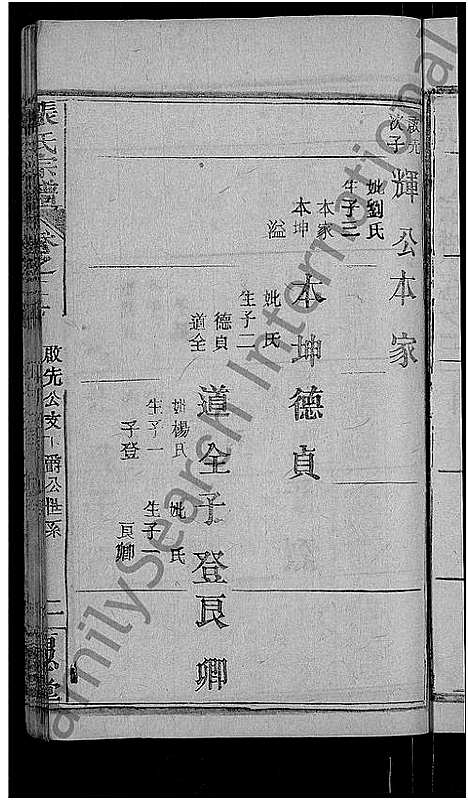 啟先
次子
輝公本家
妣劉氏
生子三
本家
本坤
溢
本坤德貞
妣氏
生子二
德貞
道全
道全子登良卿
妣楊氏
生子一
子登
妣氏
生子一
良卿
張氏宗譜
卷之
啟先公支一爵公世系
二
FamilySearch International